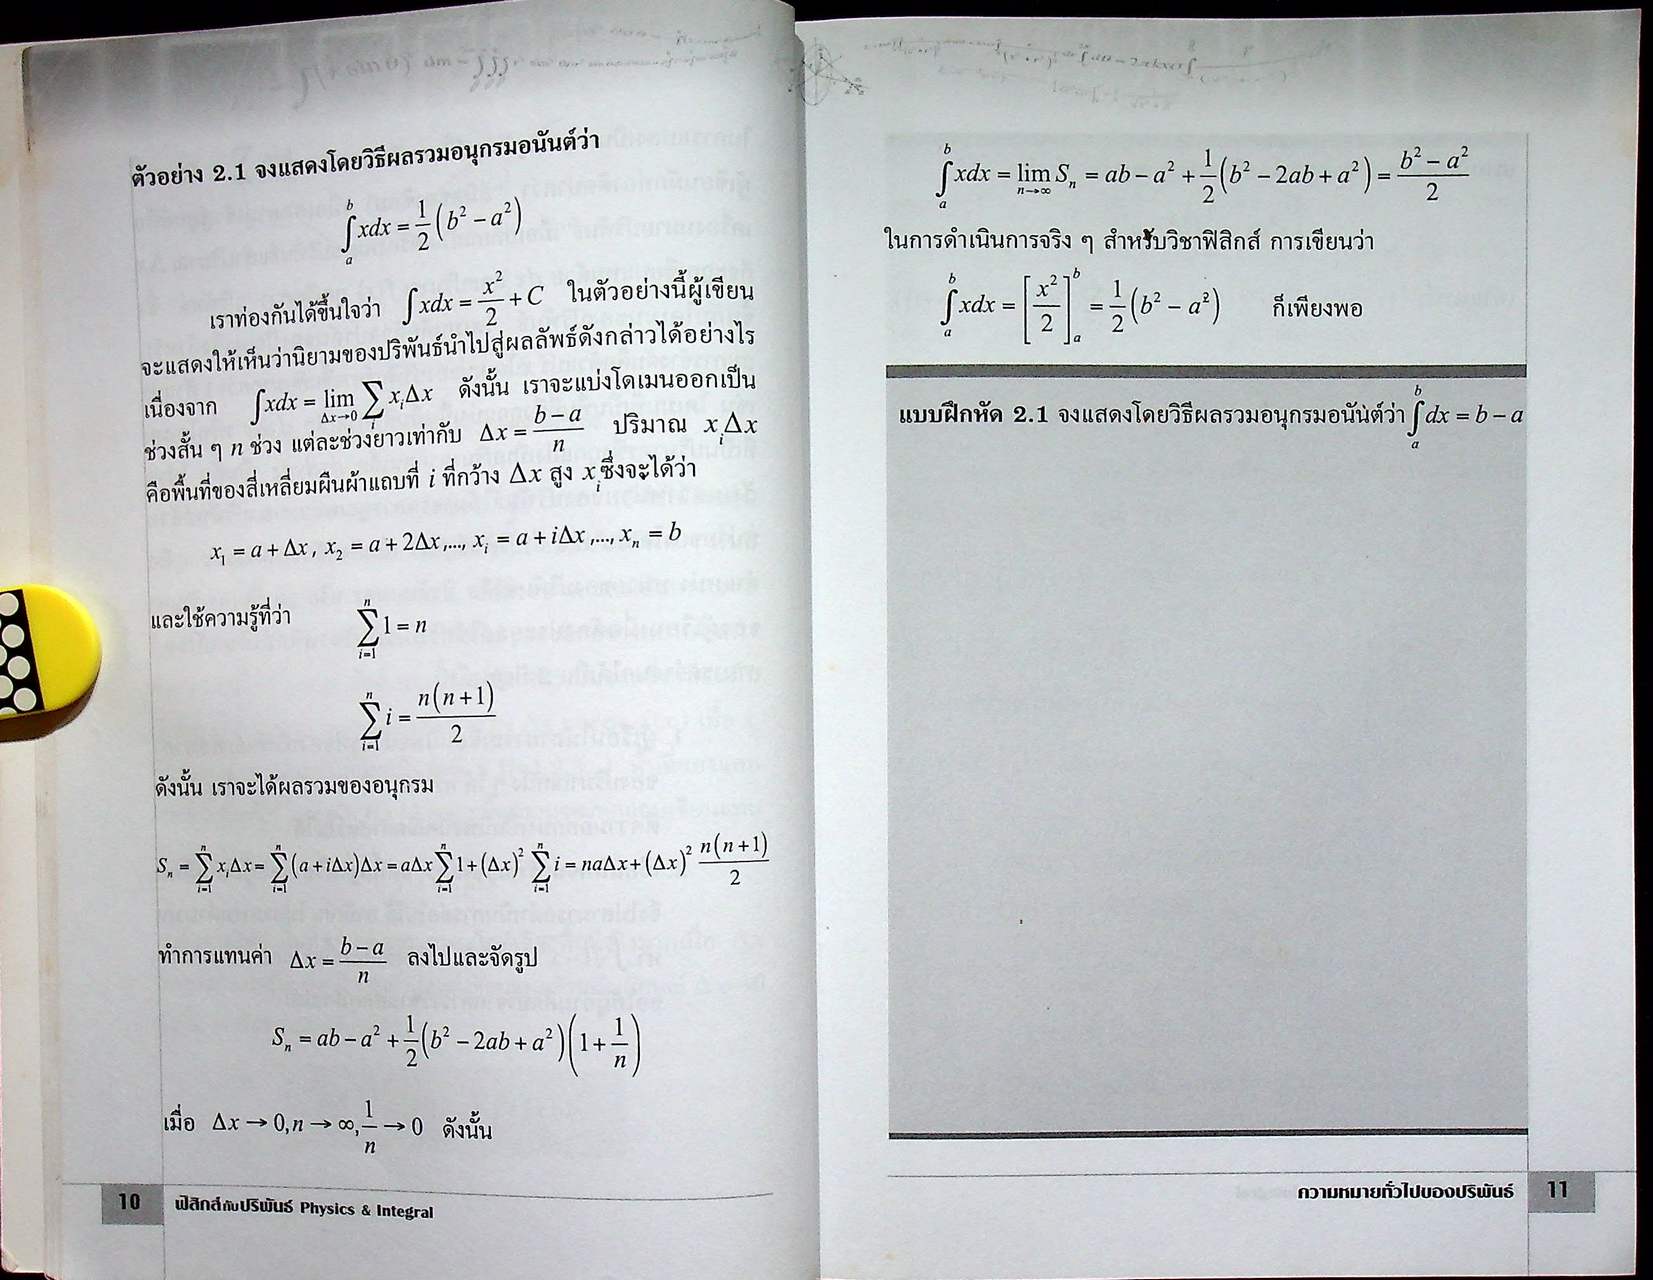 ตัวอย่าง 2.1 จงแสดงโดยวิธีผลรวมอนุกรมอนันต์ว่า
∫_a^b xdx = 1/2 (b² − a²)
เราท่องกันได้ขึ้นใจว่า ∫xdx = x²/2 + C ในตัวอย่างนี้ผู้เขียน
จะแสดงให้เห็นว่านิยามของปริพันธ์นำไปสู่ผลลัพธ์ดังกล่าวได้อย่างไร
เนื่องจาก ∫xdx = lim_{Δx→0} ∑_i x_i Δx ดังนั้น เราจะแบ่งโดเมนออกเป็น
ช่วงสั้น ๆ n ช่วง แต่ละช่วงยาวเท่ากับ Δx = (b−a)/n ปริมาณ x_i Δx
คือพื้นที่ของสี่เหลี่ยมผืนผ้าแถบที่ i ที่กว้าง Δx สูง x_i ซึ่งจะได้ว่า
x₁ = a + Δx, x₂ = a + 2Δx,..., x_i = a + iΔx,..., x_n = b
และใช้ความรู้ที่ว่า ∑_{i=1}^n 1 = n
∑_{i=1}^n i = n(n+1)/2
ดังนั้น เราจะได้ผลรวมของอนุกรม
S_n = ∑_{i=1}^n x_i Δx = ∑_{i=1}^n (a + iΔx)Δx = aΔx ∑_{i=1}^n 1 + (Δx)² ∑_{i=1}^n i = naΔx + (Δx)² n(n+1)/2
ทำการแทนค่า Δx = (b−a)/n ลงไปและจัดรูป
S_n = ab − a² + 1/2 (b² − 2ab + a²)(1 + 1/n)
เมื่อ Δx → 0, n → ∞, 1/n → 0 ดังนั้น
10 ฟิสิกส์กับปริพันธ์ Physics & Integral
∫_a^b xdx = lim_{n→∞} S_n = ab − a² + 1/2 (b² − 2ab + a²) = (b² − a²)/2
ในการดำเนินการจริง ๆ สำหรับวิชาฟิสิกส์ การเขียนว่า
∫_a^b xdx = [x²/2]_a^b = 1/2 (b² − a²) ก็เพียงพอ
แบบฝึกหัด 2.1 จงแสดงโดยวิธีผลรวมอนุกรมอนันต์ว่า ∫_a^b dx = b − a
ความหมายทั่วไปของปริพันธ์ 11